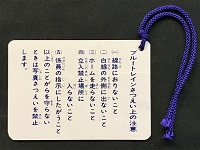 ブルートレインさつえい上の注意
(一) 線路におりないこと
(二) 白線の外側に出ないこと
(三) ホームを走らないこと
(四) 立入禁止場所に
入らないこと
(五) 係員の指示にしたがうこと
以上のことがらを守らない
ときは写真さつえいを禁止
します。